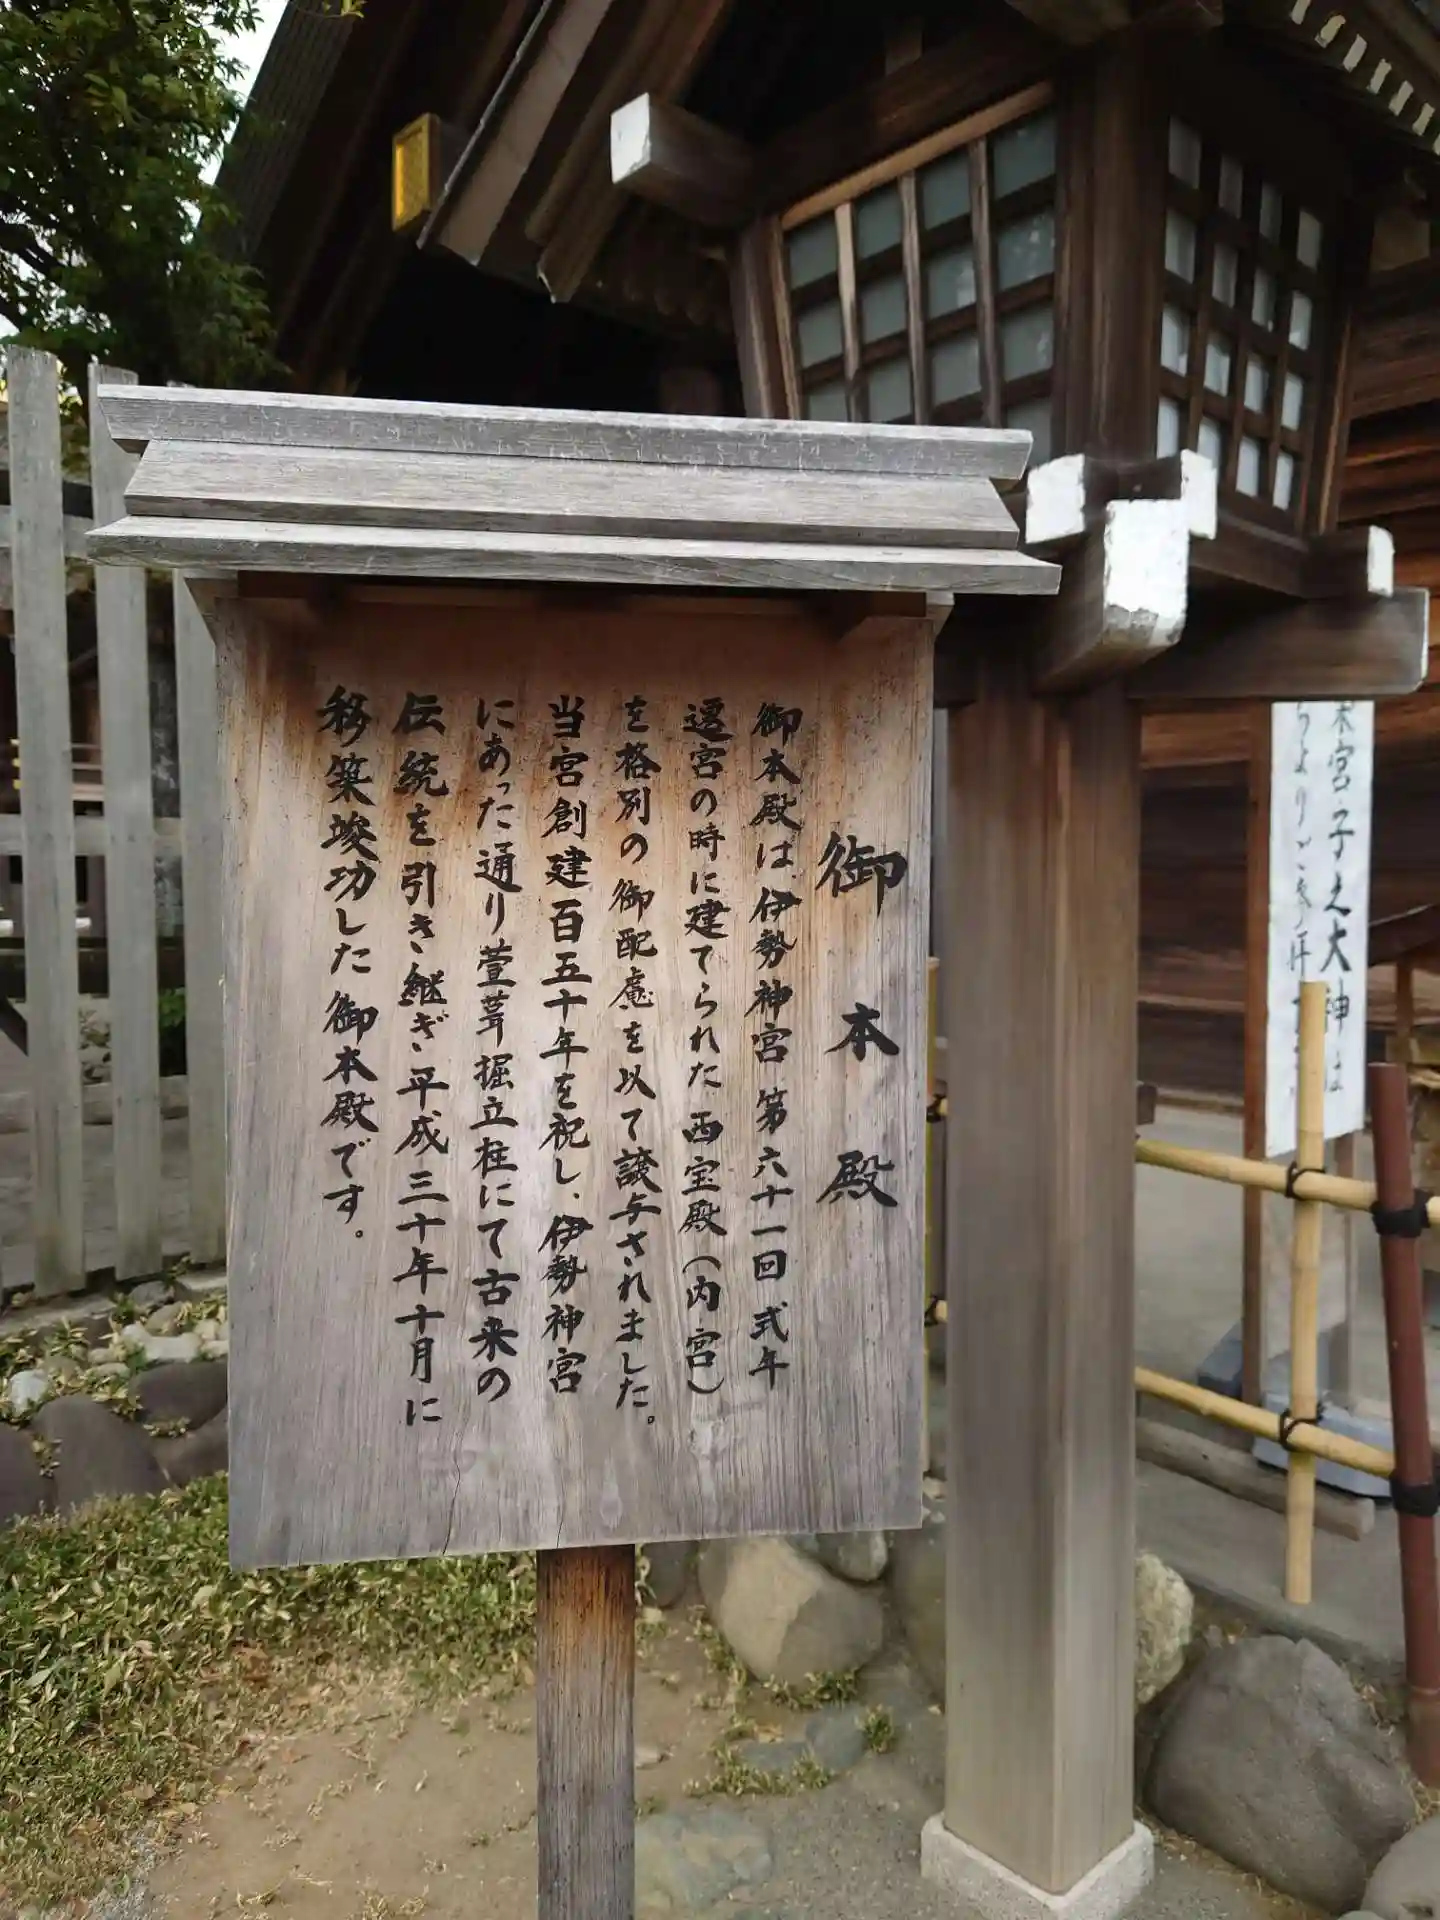 御本殿
御本殿は、伊勢神宮第六十一回式年
遷宮の時に建てられた西宝殿(内宮)
を格別の御配慮を以て譲与されました。
当宮創建百五十年を祝し、伊勢神宮
にあった通り萱葺掘立柱にて古来の
伝統を引き継ぎ平成三十年十月に
移築竣功した御本殿です。
末宮・子之大神は
ちらよりご